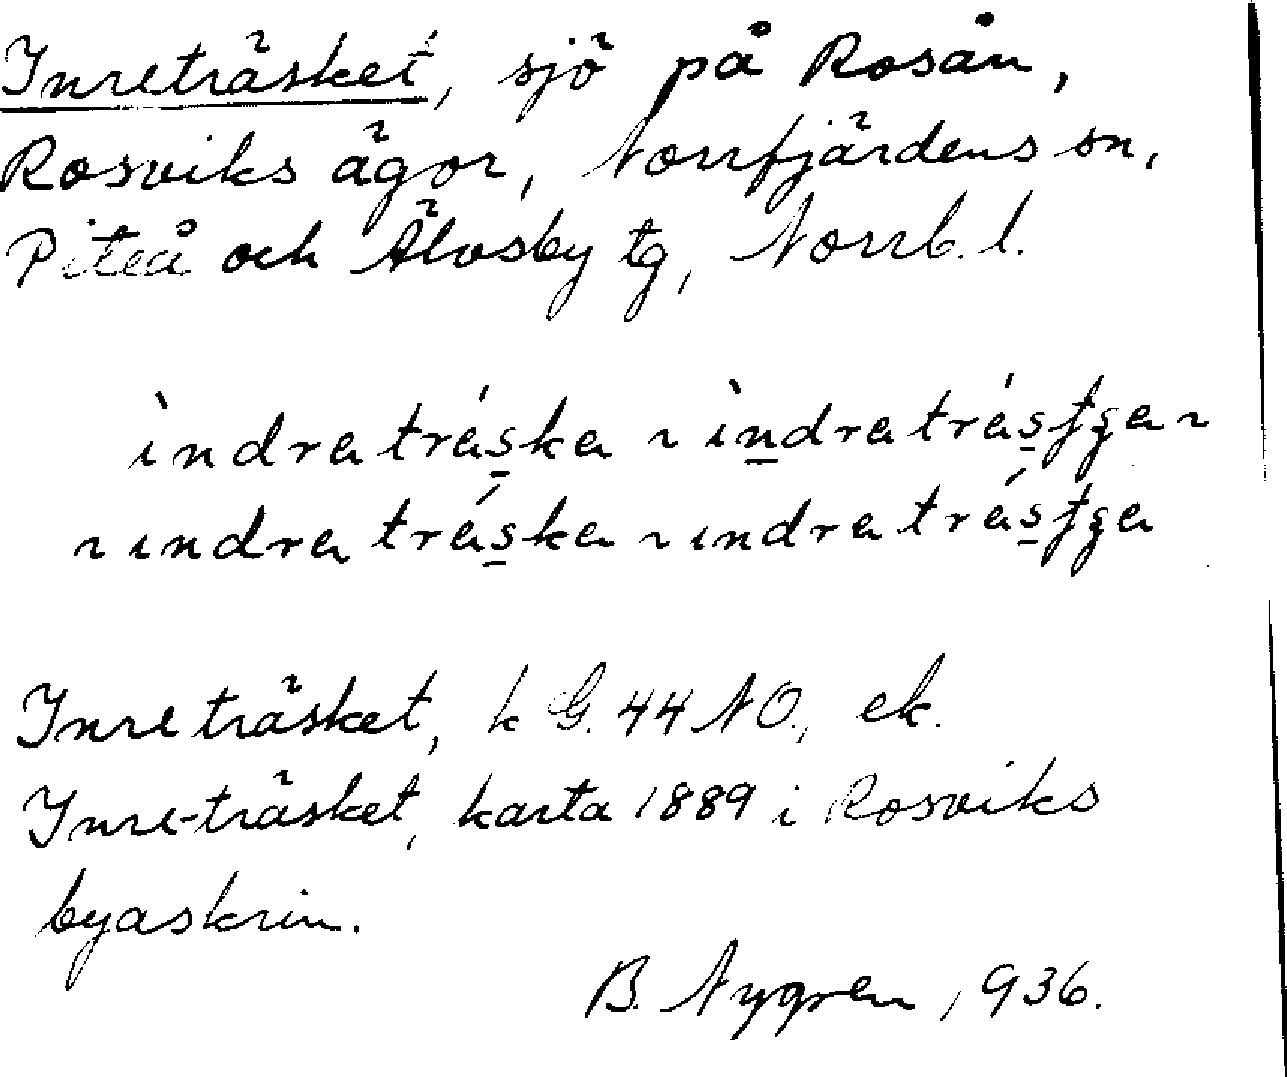 Inreträsket, sjö på Rosån,
Rosviks ägor, Norrfjärdens sn,
Piteå och Älvsby tg, Norrb. l.
ìndra tráska ~ ìndra trásʈʂa ~
~ ındra tráska ~ ındra trásʈʂa
Inre träsket, k G. 44 NO., ek.
Inre-träsket, karta 1889 i Rosviks
byaskrin.
B. Nygren, 936.